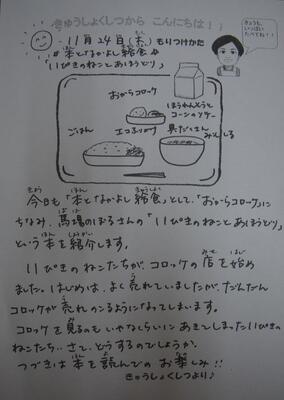 きゅうしょくしつから こんにちは!
11月24日(木)もりつけかた
♯本となかよし給食♭
「11ぴきのねことあほうどり」
きょうも、
いっぱい
たべてね!!
おからコロッケ
ほうれんそうと
コーンのソテー
ごはん
エコふりかけ
具だくさん
みそしる
今日も「本となかよし給食」として、「おからコロッケ」に
ちなみ、馬場のぼるさんの「11ぴきのねことあほうどり」
という本を紹介します。
11ぴきのねこたちが、コロッケの店を始め
ました。はじめは、よく売れていましたが、だんだん
コロッケが売れのこるようになってしまいます。
コロッケを見るのもいやなくらいにあきてしまった11ぴきの
ねこたち…さて、どうするのでしょうか。
つづきは本を読んでのお楽しみ!!
きゅうしょくしつより♪